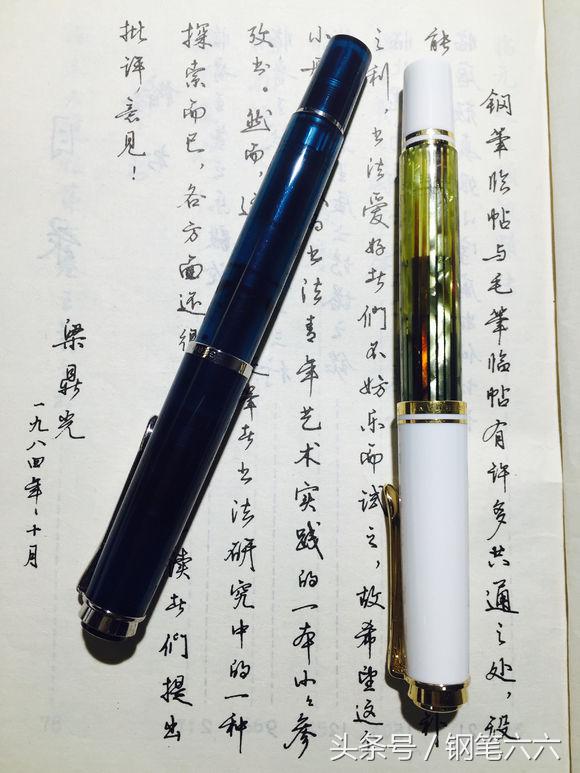 鋼筆临帖与毛筆临帖有许多共通之处，设
能 补
之利，书法爱好者們不妨乐而试之，故希望这
小册 书法青年艺术实践的一本小々参
考书。然而，这 者书法研究中的一种
探索而已，各方面还 读者們提出
批评，意见！
梁鼎光
一九八四年、十月
头条号 / 钢笔六六